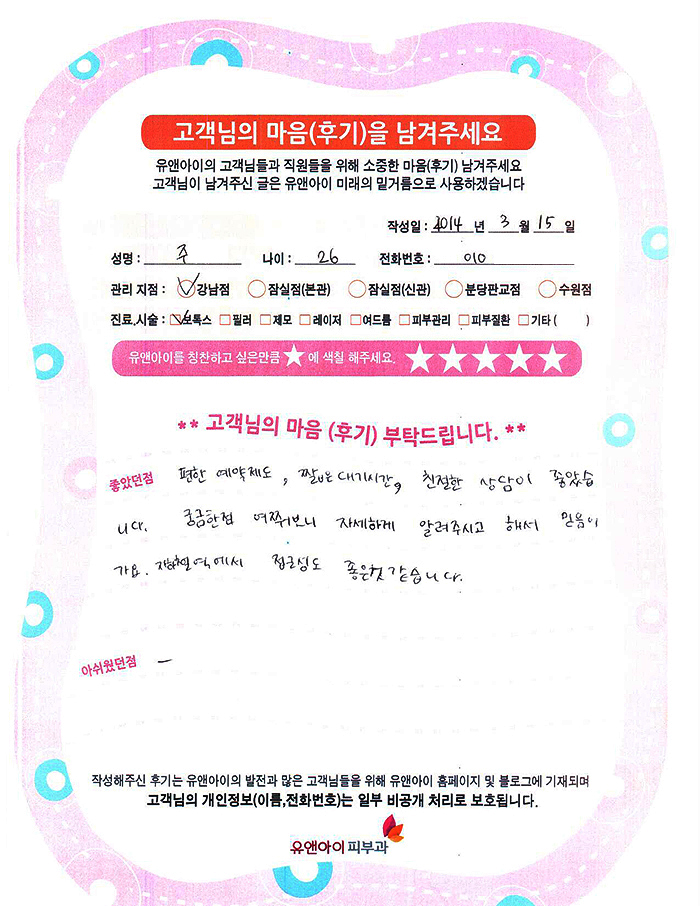 고객님의 마음(후기)을 남겨주세요
유앤아이의 고객님들과 직원들을 위해 소중한 마음(후기) 남겨주세요
고객님이 남겨주신 글은 유앤아이 미래의 밑거름으로 사용하겠습니다
작성일 : 2014 년 3 월 15 일
성명 : 주 나이 : 26 전화번호 : 010
관리 지점 : 강남점 잠실점(본관) 잠실점(신관) 분당판교점 수원점
진료,시술 : 보톡스 필러 제모 레이저 여드름 피부관리 피부질환 기타 ( )
유앤아이를 칭찬하고 싶은만큼 ★ 에 색칠 해주세요. ★★★★★
** 고객님의 마음 (후기) 부탁드립니다. **
좋았던점 편한 예약제도, 짧은 대기시간, 친절한 상담이 좋았습
니다. 궁금한점 여쭤보니 자세하게 알려주시고 해서 믿음이
가요. 지하철역에서 접근성도 좋은것 같습니다.
아쉬웠던점 –
작성해주신 후기는 유앤아이의 발전과 많은 고객님들을 위해 유앤아이 홈페이지 및 블로그에 기재되며
고객님의 개인정보(이름,전화번호)는 일부 비공개 처리로 보호됩니다.
유앤아이피부과